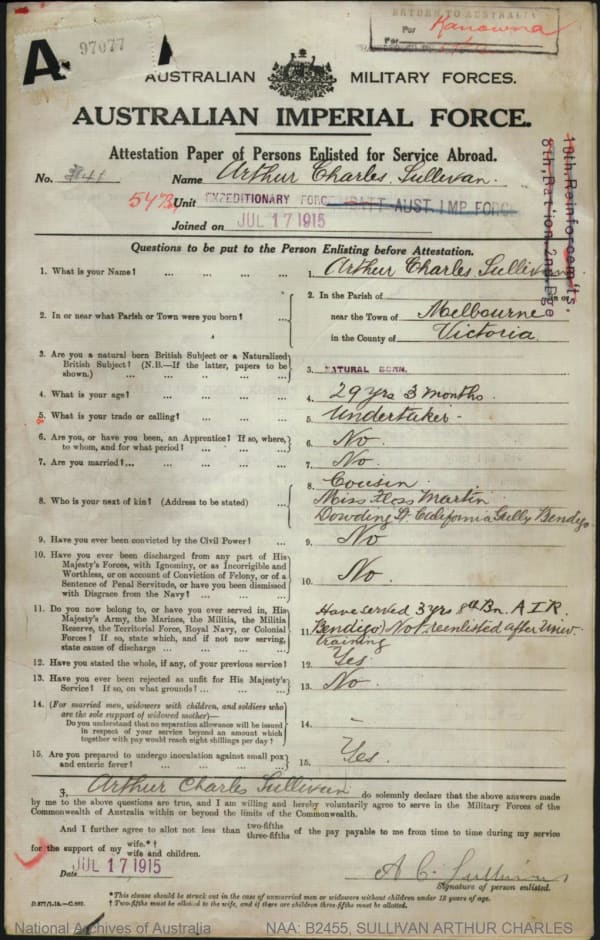 A
97077
RETURN TO AUSTRALIA
Per Kanowna
AUSTRALIAN MILITARY FORCES.
AUSTRALIAN IMPERIAL FORCE.
Attestation Paper of Persons Enlisted for Service Abroad.
No. Name Arthur Charles Sullivan.
Unit EXPEDITIONARY FORCE BATT AUST. IMP. FORCE
10th Reinforcem'ts,
8th Battalion 2nd Bge
Joined on JUL 17 1915
Questions to be put to the Person Enlisting before Attestation.
1. What is your Name? ... ... ... ... 1. Arthur Charles Sullivan
2. In or near what Parish or Town were you born? ... 2. In the Parish of in or
near the Town of Melbourne
in the County of Victoria
3. Are you a natural born British Subject or a Naturalized
British Subject? (N.B.—If the latter, papers to be
shown.) ... ... ... ... 3. NATURAL BORN.
4. What is your age? ... ... ... ... 4. 29 yrs 3 months.
5. What is your trade or calling? ... ... ... 5. Undertaker
6. Are you, or have you been, an Apprentice? If so, where,
to whom, and for what period? ... ... ... 6. No.
7. Are you married? ... ... ... ... 7. No.
8. Who is your next of kin? (Address to be stated) ... 8. Cousin.
Miss Floss Martin
Dowding St. California Gully Bendigo
9. Have you ever been convicted by the Civil Power? ... 9. No
10. Have you ever been discharged from any part of His
Majesty's Forces, with Ignominy, or as Incorrigible and
Worthless, or on account of Conviction of Felony, or of a
Sentence of Penal Servitude, or have you been dismissed
with Disgrace from the Navy? ... ... ... 10. No.
11. Do you now belong to, or have you ever served in, His
Majesty's Army, the Marines, the Militia, the Militia
Reserve, the Territorial Force, Royal Navy, or Colonial
Forces? If so, state which, and if not now serving,
state cause of discharge ... ... ... 11. Have served 3 yrs 8th Bn. A I R.
Bendigo) Not reenlisted after
training
12. Have you stated the whole, if any, of your previous service? 12. Yes
13. Have you ever been rejected as unfit for His Majesty's
Service? If so, on what grounds? ... ... ... 13. No.
14. (For married men, widowers with children, and soldiers who
are the sole support of widowed mother)—
Do you understand that no separation allowance will be issued
in respect of your service beyond an amount which
together with pay would reach eight shillings per day? 14. -
15. Are you prepared to undergo inoculation against small pox
and enteric fever? ... ... ... 15. Yes.
I, Arthur Charles Sullivan do solemnly declare that the above answers made
by me to the above questions are true, and I am willing and hereby voluntarily agree to serve in the Military Forces of the
Commonwealth of Australia within or beyond the limits of the Commonwealth.
And I further agree to allot not less than two-fifths three-fifths of the pay payable to me from time to time during my service
for the support of my wife.*† wife and children.
Date JUL 17 1915
A C. Sullivan
Signature of person enlisted.
*This clause should be struck out in the case of unmarried men or widowers without children under 18 years of age.
† Two-fifths must be allotted to the wife, and if there are children three-fifths must be allotted.
National Archives of Australia
NAA: B2455, SULLIVAN ARTHUR CHARLES